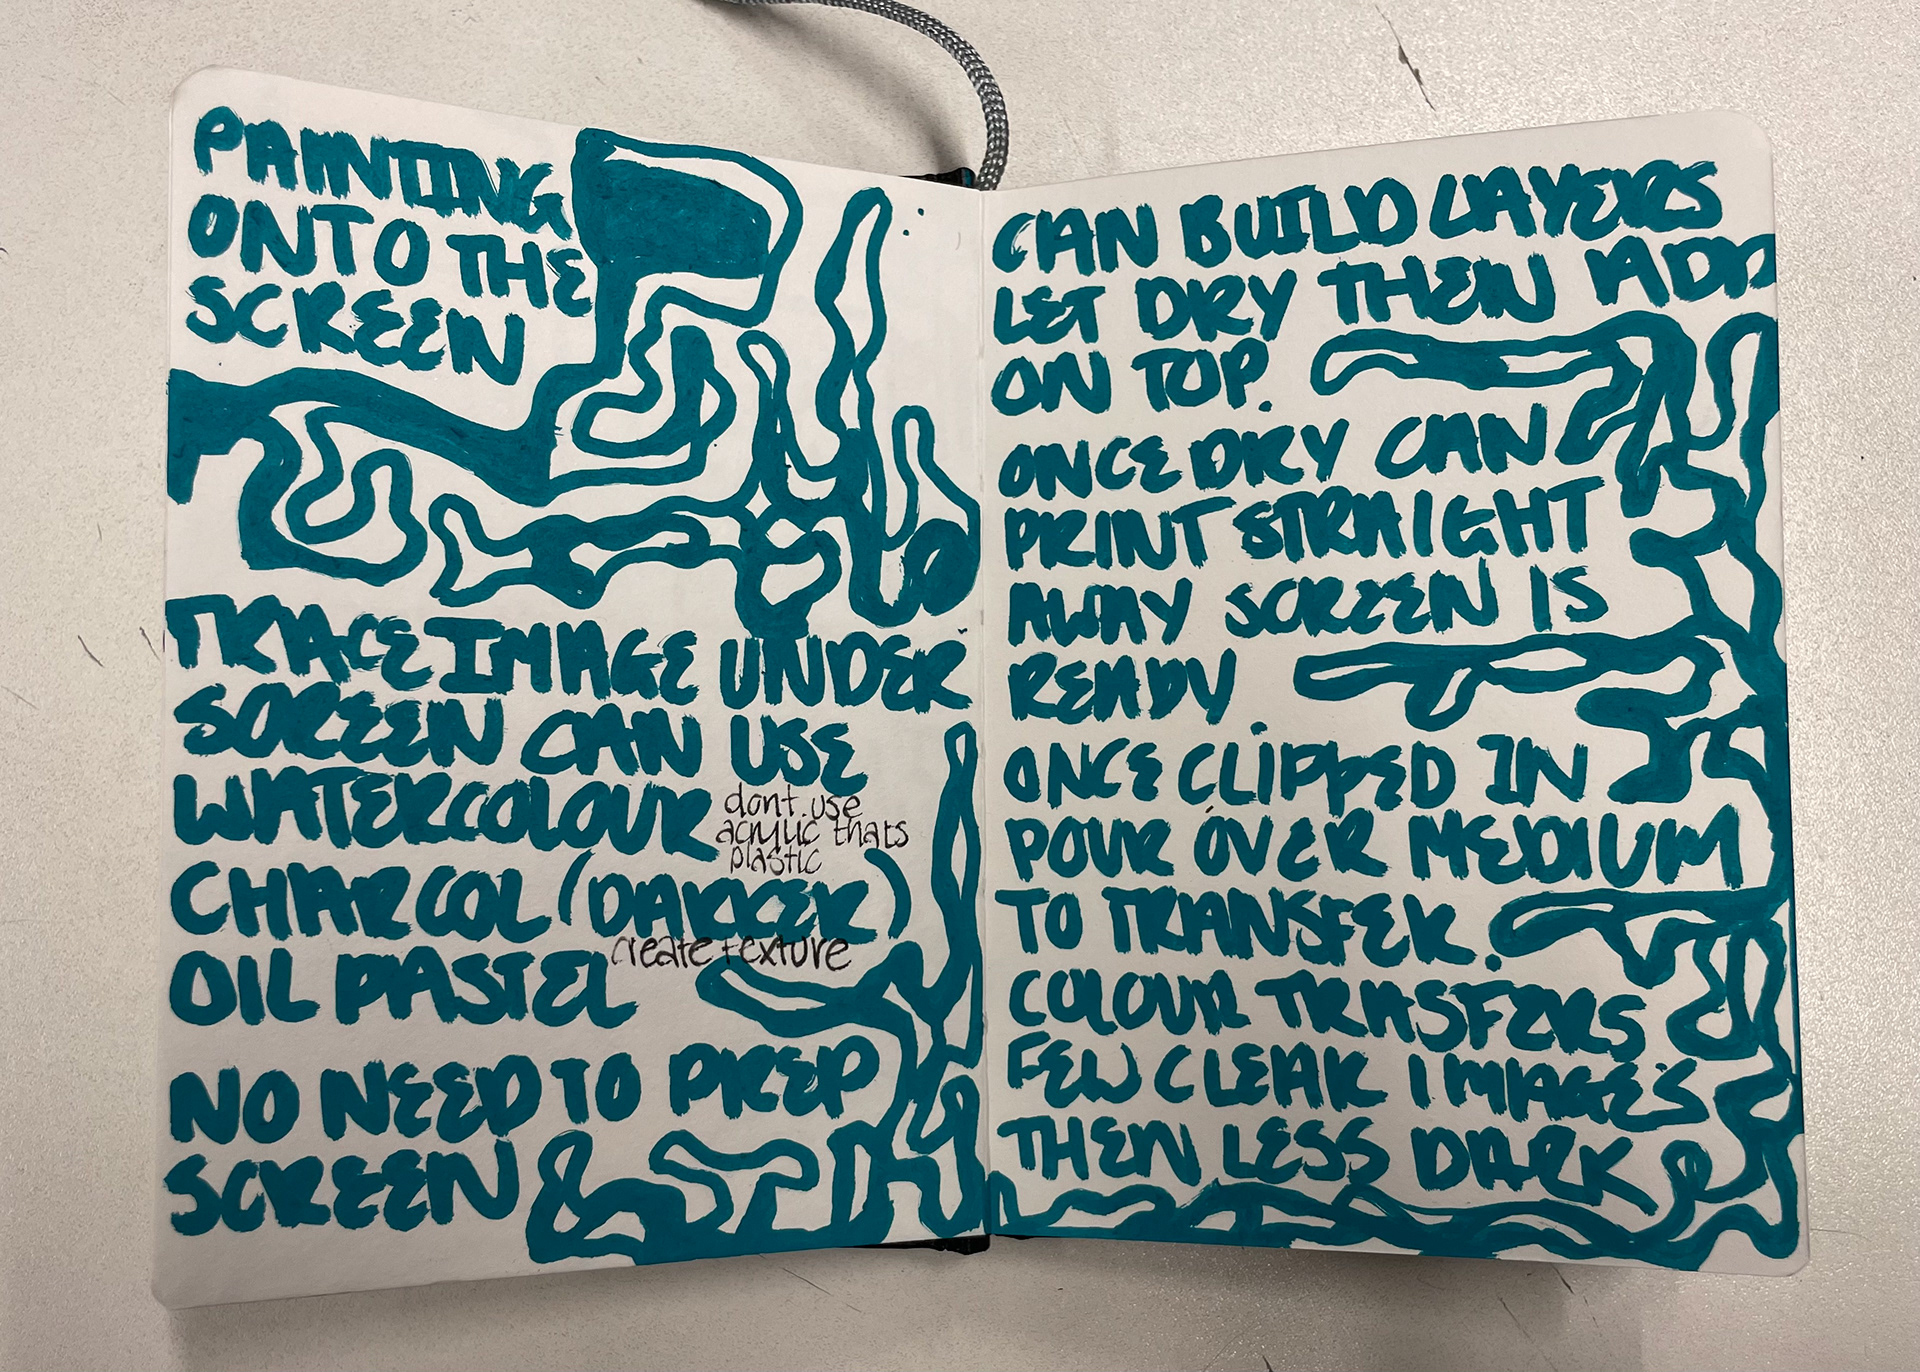 PAINTING
ONTO THE
SCREEN
TRACE IMAGE UNDER
SCREEN CAN USE
WATERCOLOUR
dont use
acrylic thats
plastic
CHARCOL (DARKER)
create texture
OIL PASTEL
NO NEED TO PREP
SCREEN
CAN BUILD LAYERS
LET DRY THEN ADD
ON TOP.
ONCE DRY CAN
PRINT STRAIGHT
AWAY SCREEN IS
READY.
ONCE CLIPPED IN
POUR OVER MEDIUM
TO TRANSFER.
COLOUR TRASFERS
FEW CLEAR IMAGES
THEN LESS DARK